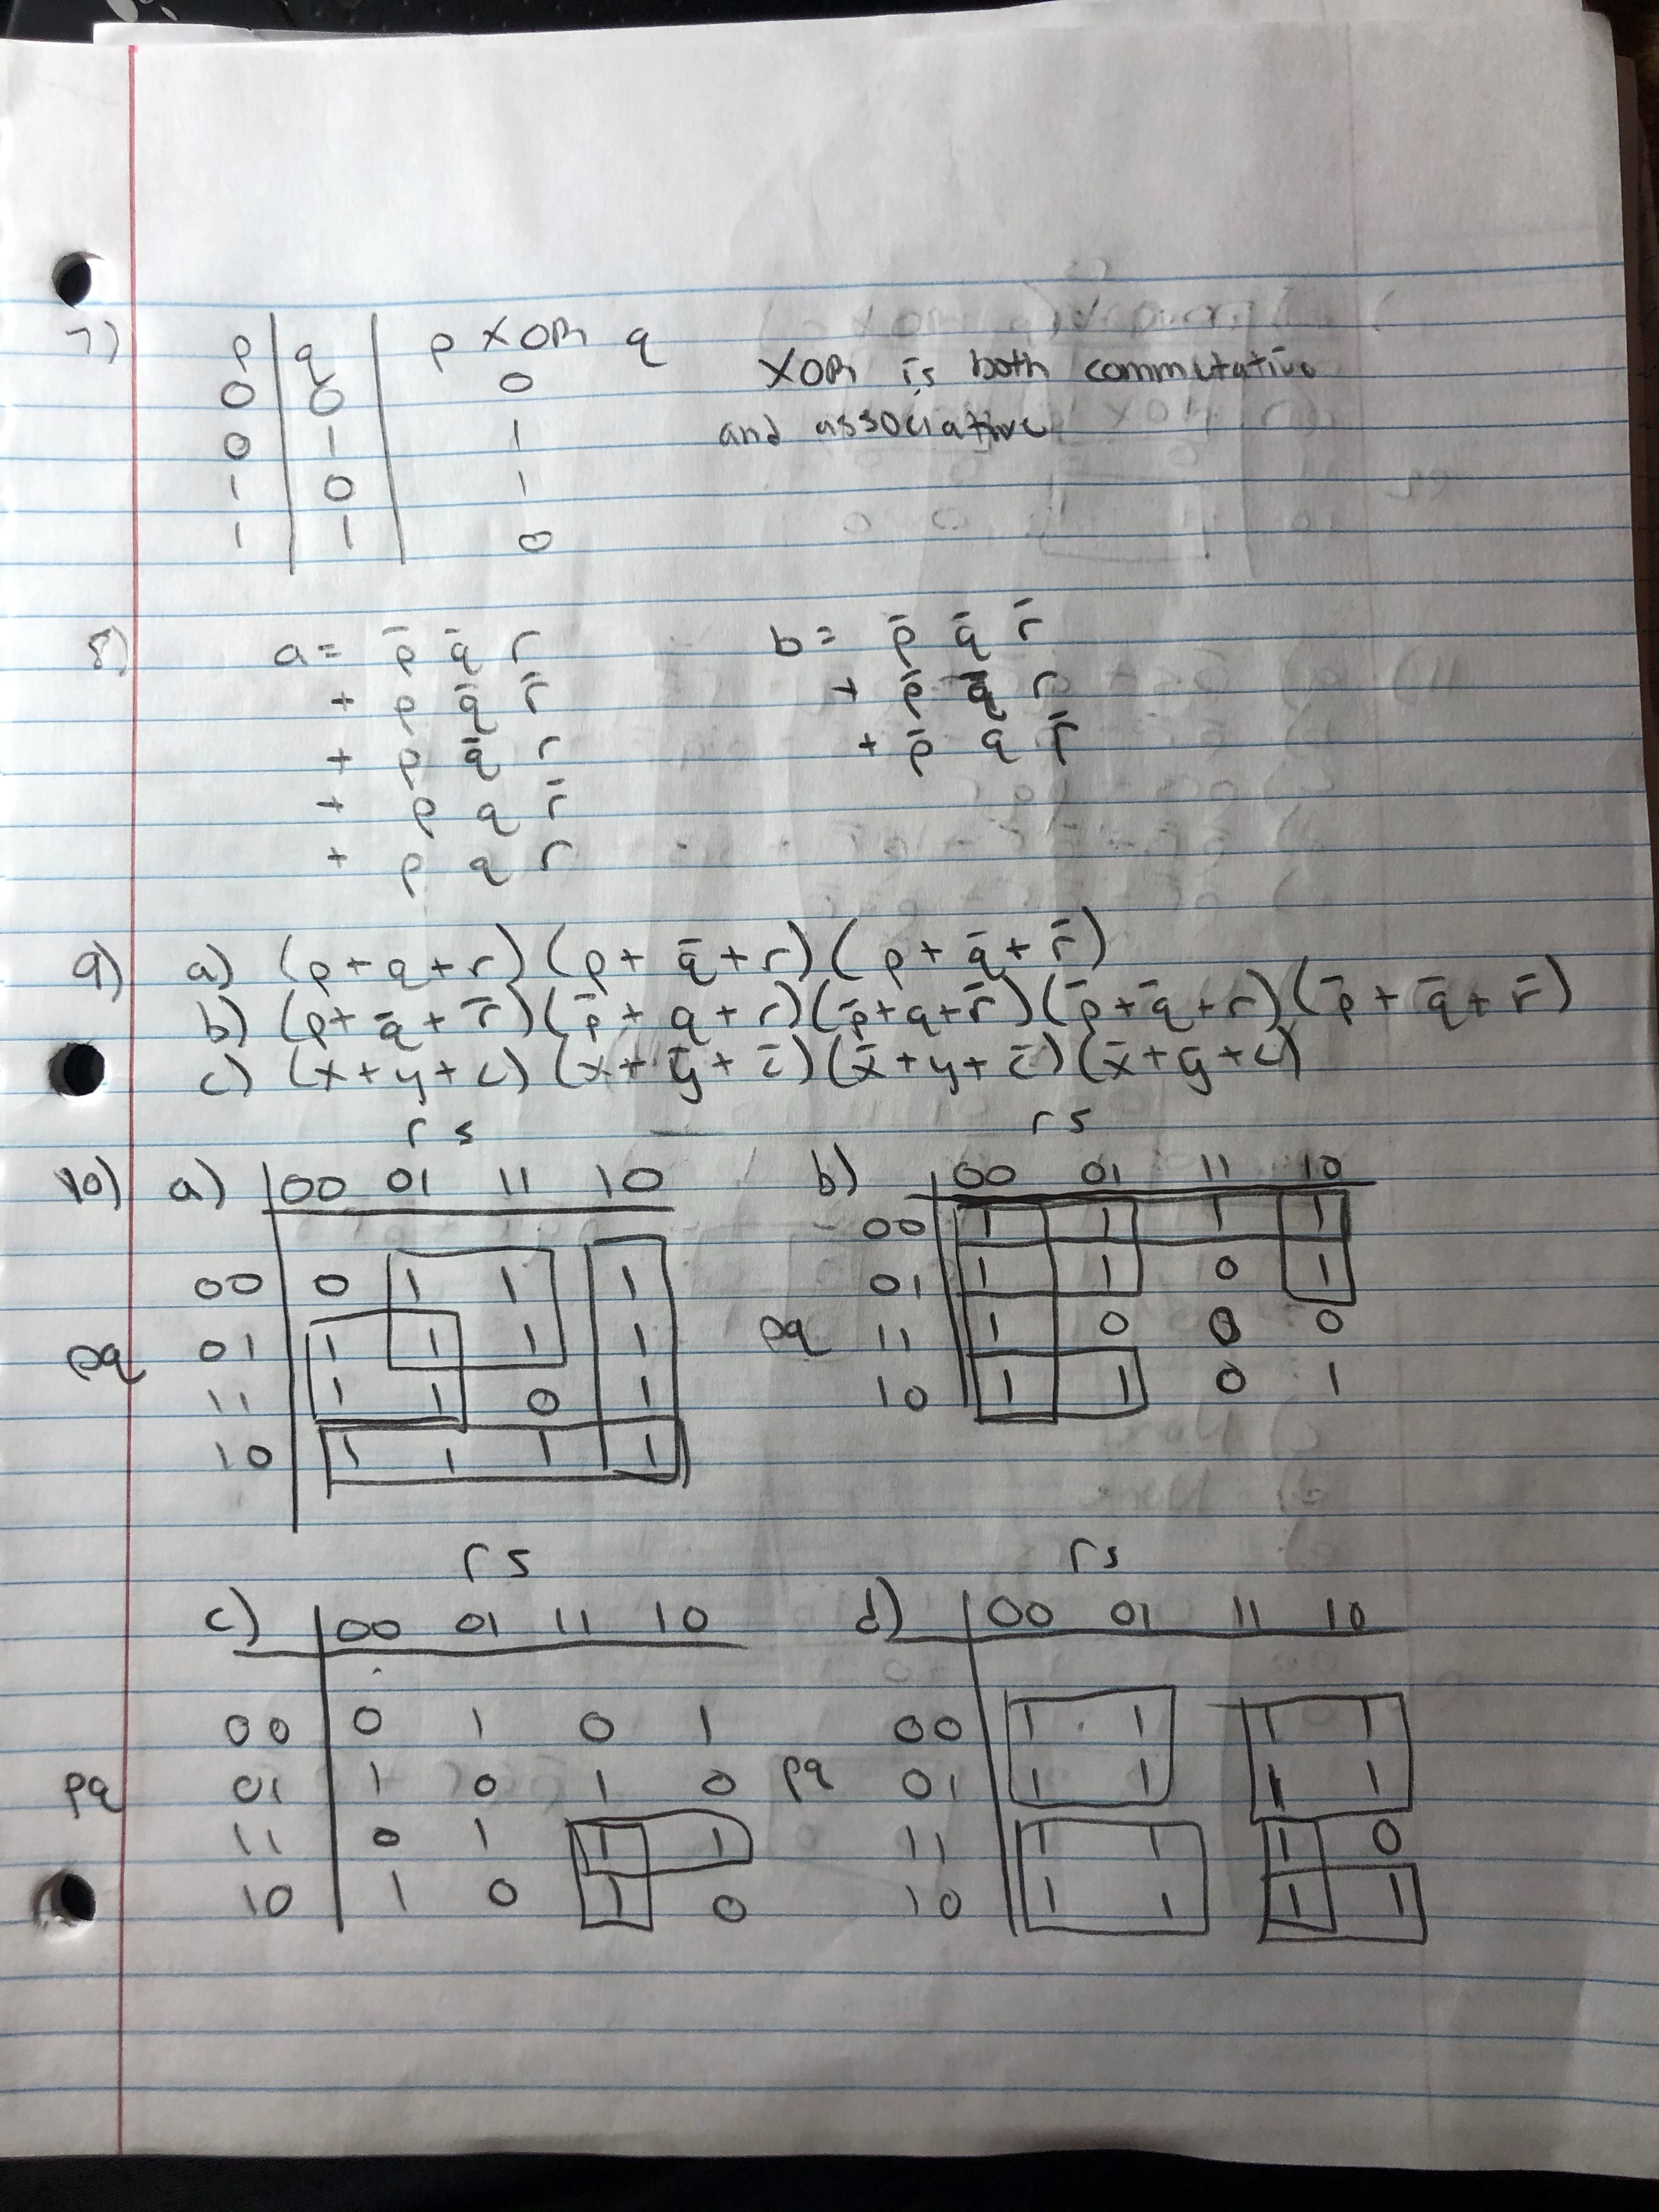 7) p | q | p XOR q
0 0 0
0 1 1
1 0 1
1 1 0
XOR is both commutative
and associative
8) a = p̄ q̄ r
+ p q̄ r̄
+ p q̄ r
+ p q r̄
+ p q r
b = p̄ q̄ r̄
+ p̄ q̄ r
+ p̄ q r̄
9) a) (p + q + r) (p + q̄ + r) (p + q̄ + r̄)
b) (p + q̄ + r̄) (p̄ + q + r) (p̄ + q + r̄) (p̄ + q̄ + r) (p̄ + q̄ + r̄)
c) (x + y + c) (x + ȳ + c̄) (x̄ + y + c̄) (x̄ + ȳ + c)
rs
10) a) 00 01 11 10
00 0 1 1 1
pq 01 1 1 1 1
11 1 1 0 1
10 1 1 1 1
rs
b) 00 01 11 10
00 1 1 1 1
01 1 1 0 1
pq 11 1 0 0 0
10 1 1 0 1
rs
c) 00 01 11 10
00 0 1 0 1
pq 01 1 0 1 0
11 0 1 1 1
10 1 0 1 0
rs
d) 00 01 11 10
00 1 1 1 1
pq 01 1 1 1 1
11 1 1 1 0
10 1 1 1 1